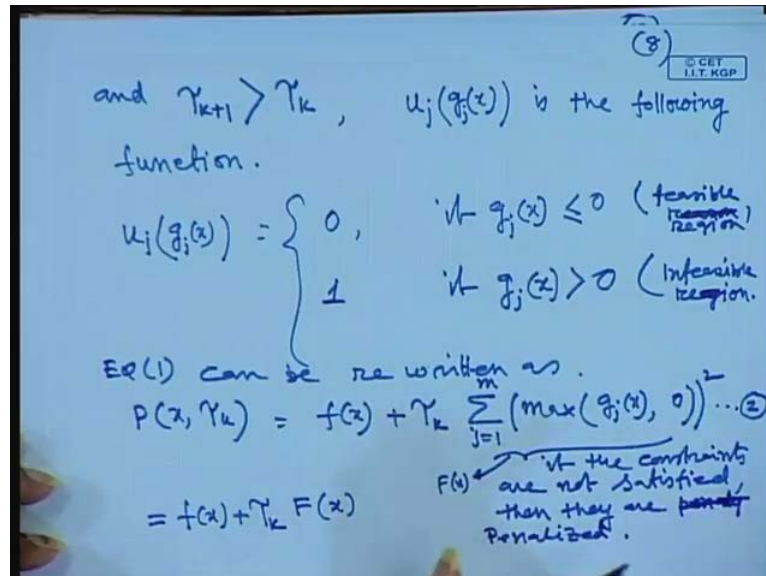 (8)
© CET
I.I.T. KGP
and γₖ₊₁ > γₖ , uⱼ(gⱼ(x)) is the following
function.
uⱼ(gⱼ(x)) = { 0, if gⱼ(x) ≤ 0 (feasible region)
1 if gⱼ(x) > 0 (Infeasible region.
EQ(1) can be re written as.
P(x, γₖ) = f(x) + γₖ ∑ⱼ₌₁ᵐ (max(gⱼ(x), 0))² ... ②
F(x) if the constraints
are not satisfied,
then they are
Penalized.
= f(x) + γₖ F(x)